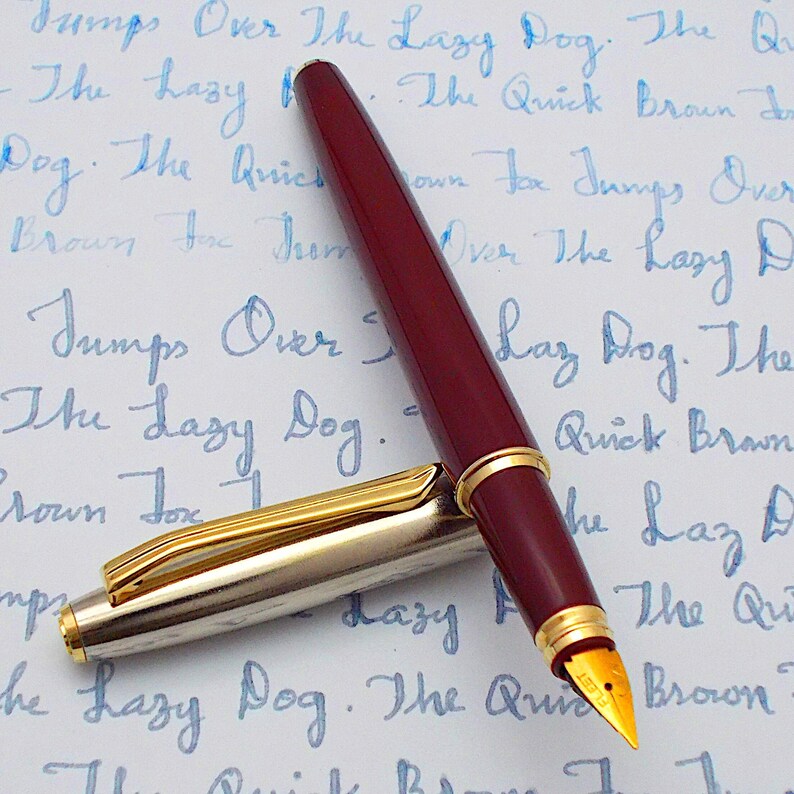 Jumps Over The Lazy Dog. The Qu
The Lazy D . . The Quick Brown Fox
Dog. The Quick Brown Fox Jumps Over
Brown Fox Jum Over The Lazy D
Jumps Over T Laz Dog. The
The Lazy Dog. The Quick Brown
rown Fox J he Lazy
mps he Quick
he Lazy Dog. The Quick Brown
Jumps Over Lazy Dog. T
The Quick Brown Fox Ju